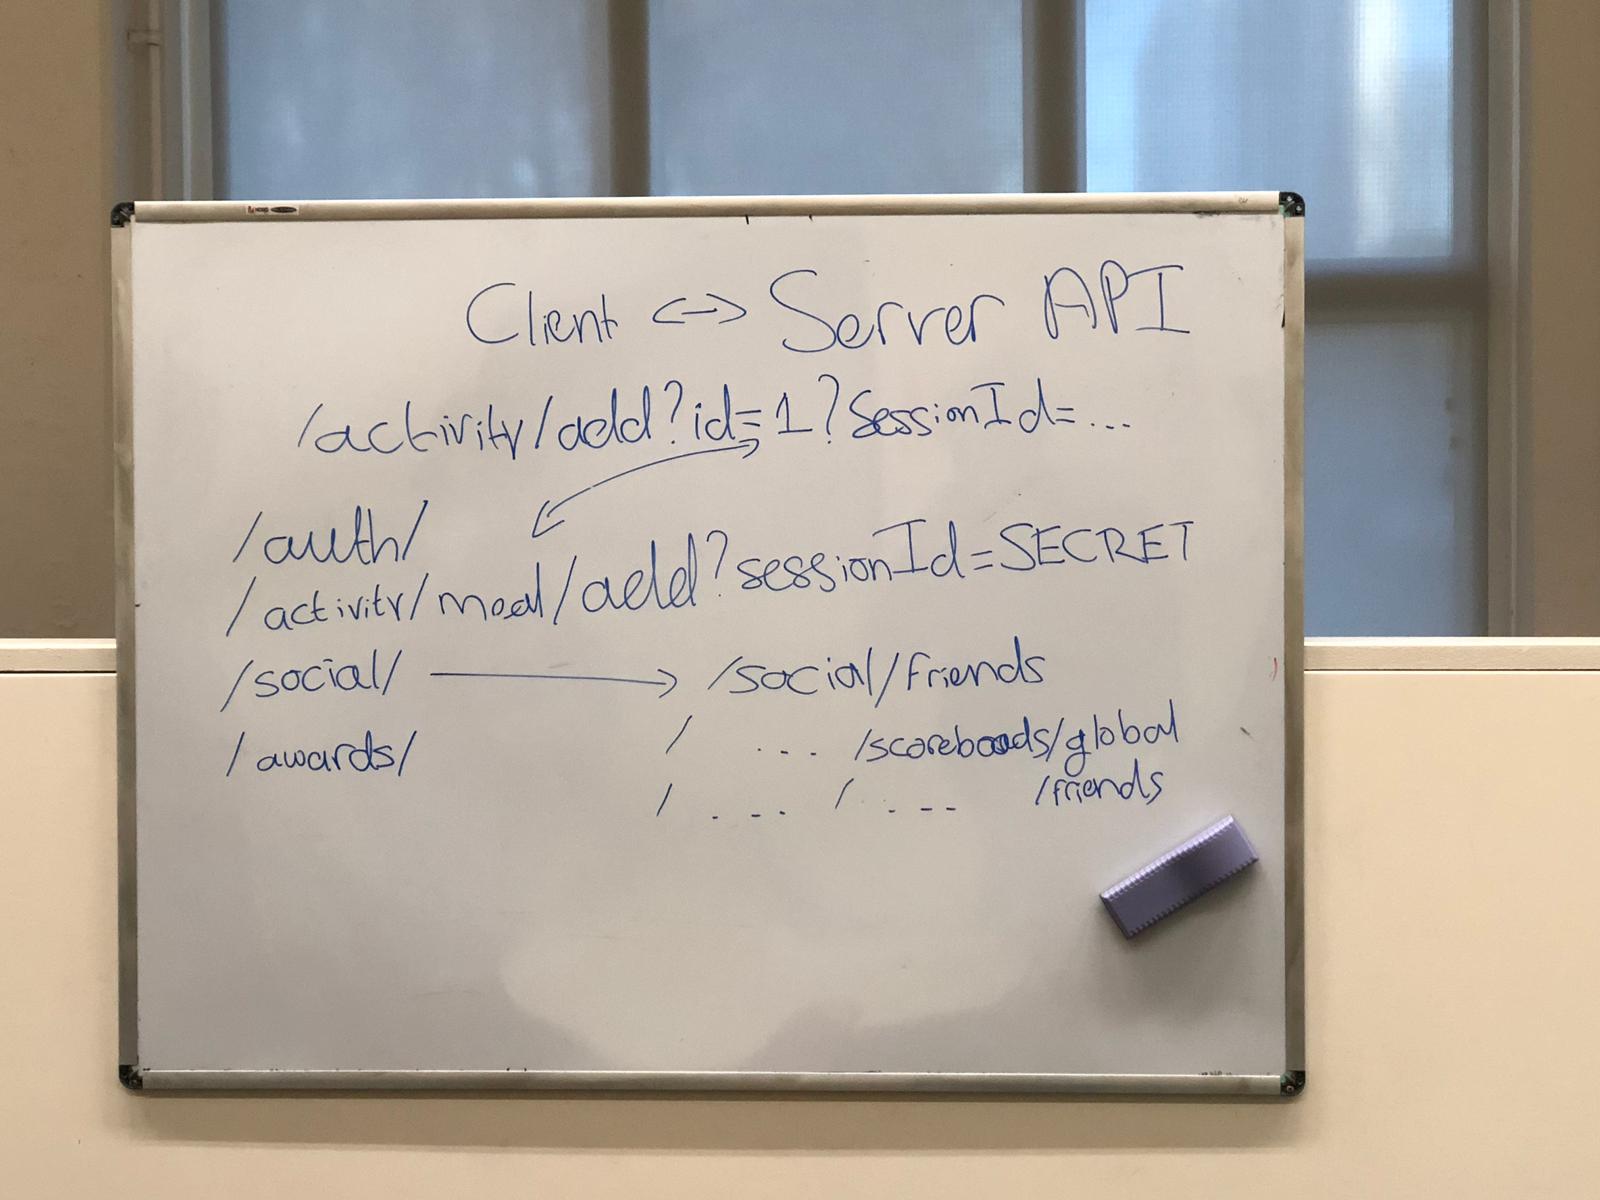 Client <-> Server API
/activity/add?id=1?SessionId=...
/auth/
/activity/meal/add?sessionId=SECRET
/social/ → /social/friends
/awards/ / ... /scoreboads/global
/ ... / ... /friends